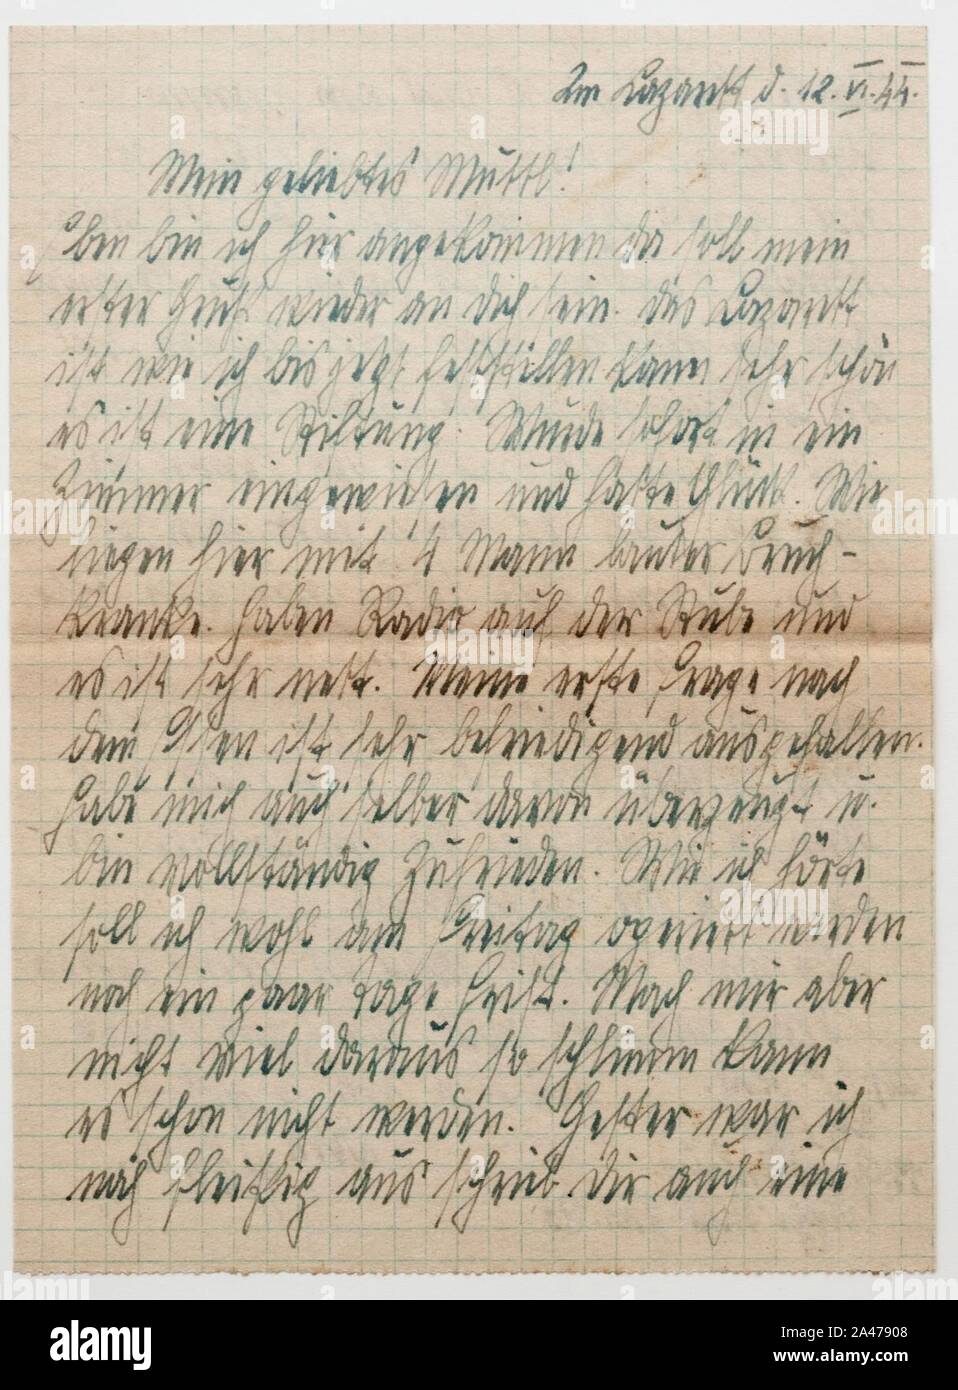 Im Lazarett d. 12. VI. 44.
Mein geliebtes Muttl!
Eben bin ich hier angekommen da soll mein
erster Gruß wieder an dich sein. Das Lazarett
ist wie ich bis jetzt feststellen kann sehr schön
es ist eine Stiftung. Wurde sofort in ein
Zimmer eingewiesen und hatte Glück. Wir
liegen hier mit 4 Mann lauter Bruch-
kranke. Haben Radio auf der Stube und
es ist sehr nett. Meine erste Frage nach
dem Essen ist sehr befriedigend ausgefallen.
Habe mich auch selber davon überzeugt u.
bin vollständig zufrieden. Wie ich hörte
soll ich wohl am Freitag operiert werden
noch ein paar Tage Frist. Mach mir aber
nicht viel daraus so schlimm kann
es schon nicht werden. Gestern war ich
noch fleißig aus schrieb Dir auch eine
alamy
Image ID: 2A47908
www.alamy.com